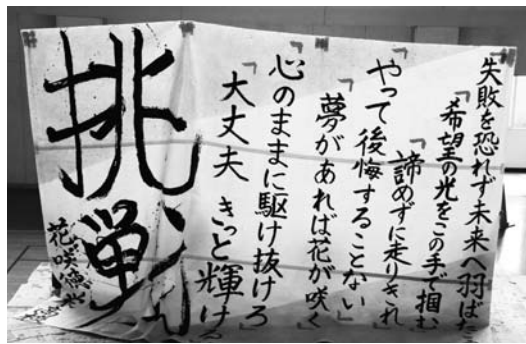 「失敗を恐れず未来へ羽ばた
「希望の光をこの手で掴む
「諦めずに走りきれ
「やって後悔することない」
「夢があれば花が咲く
「心のままに駆け抜けろ
「大丈夫 きっと輝ける
挑戦
花咲徳栄